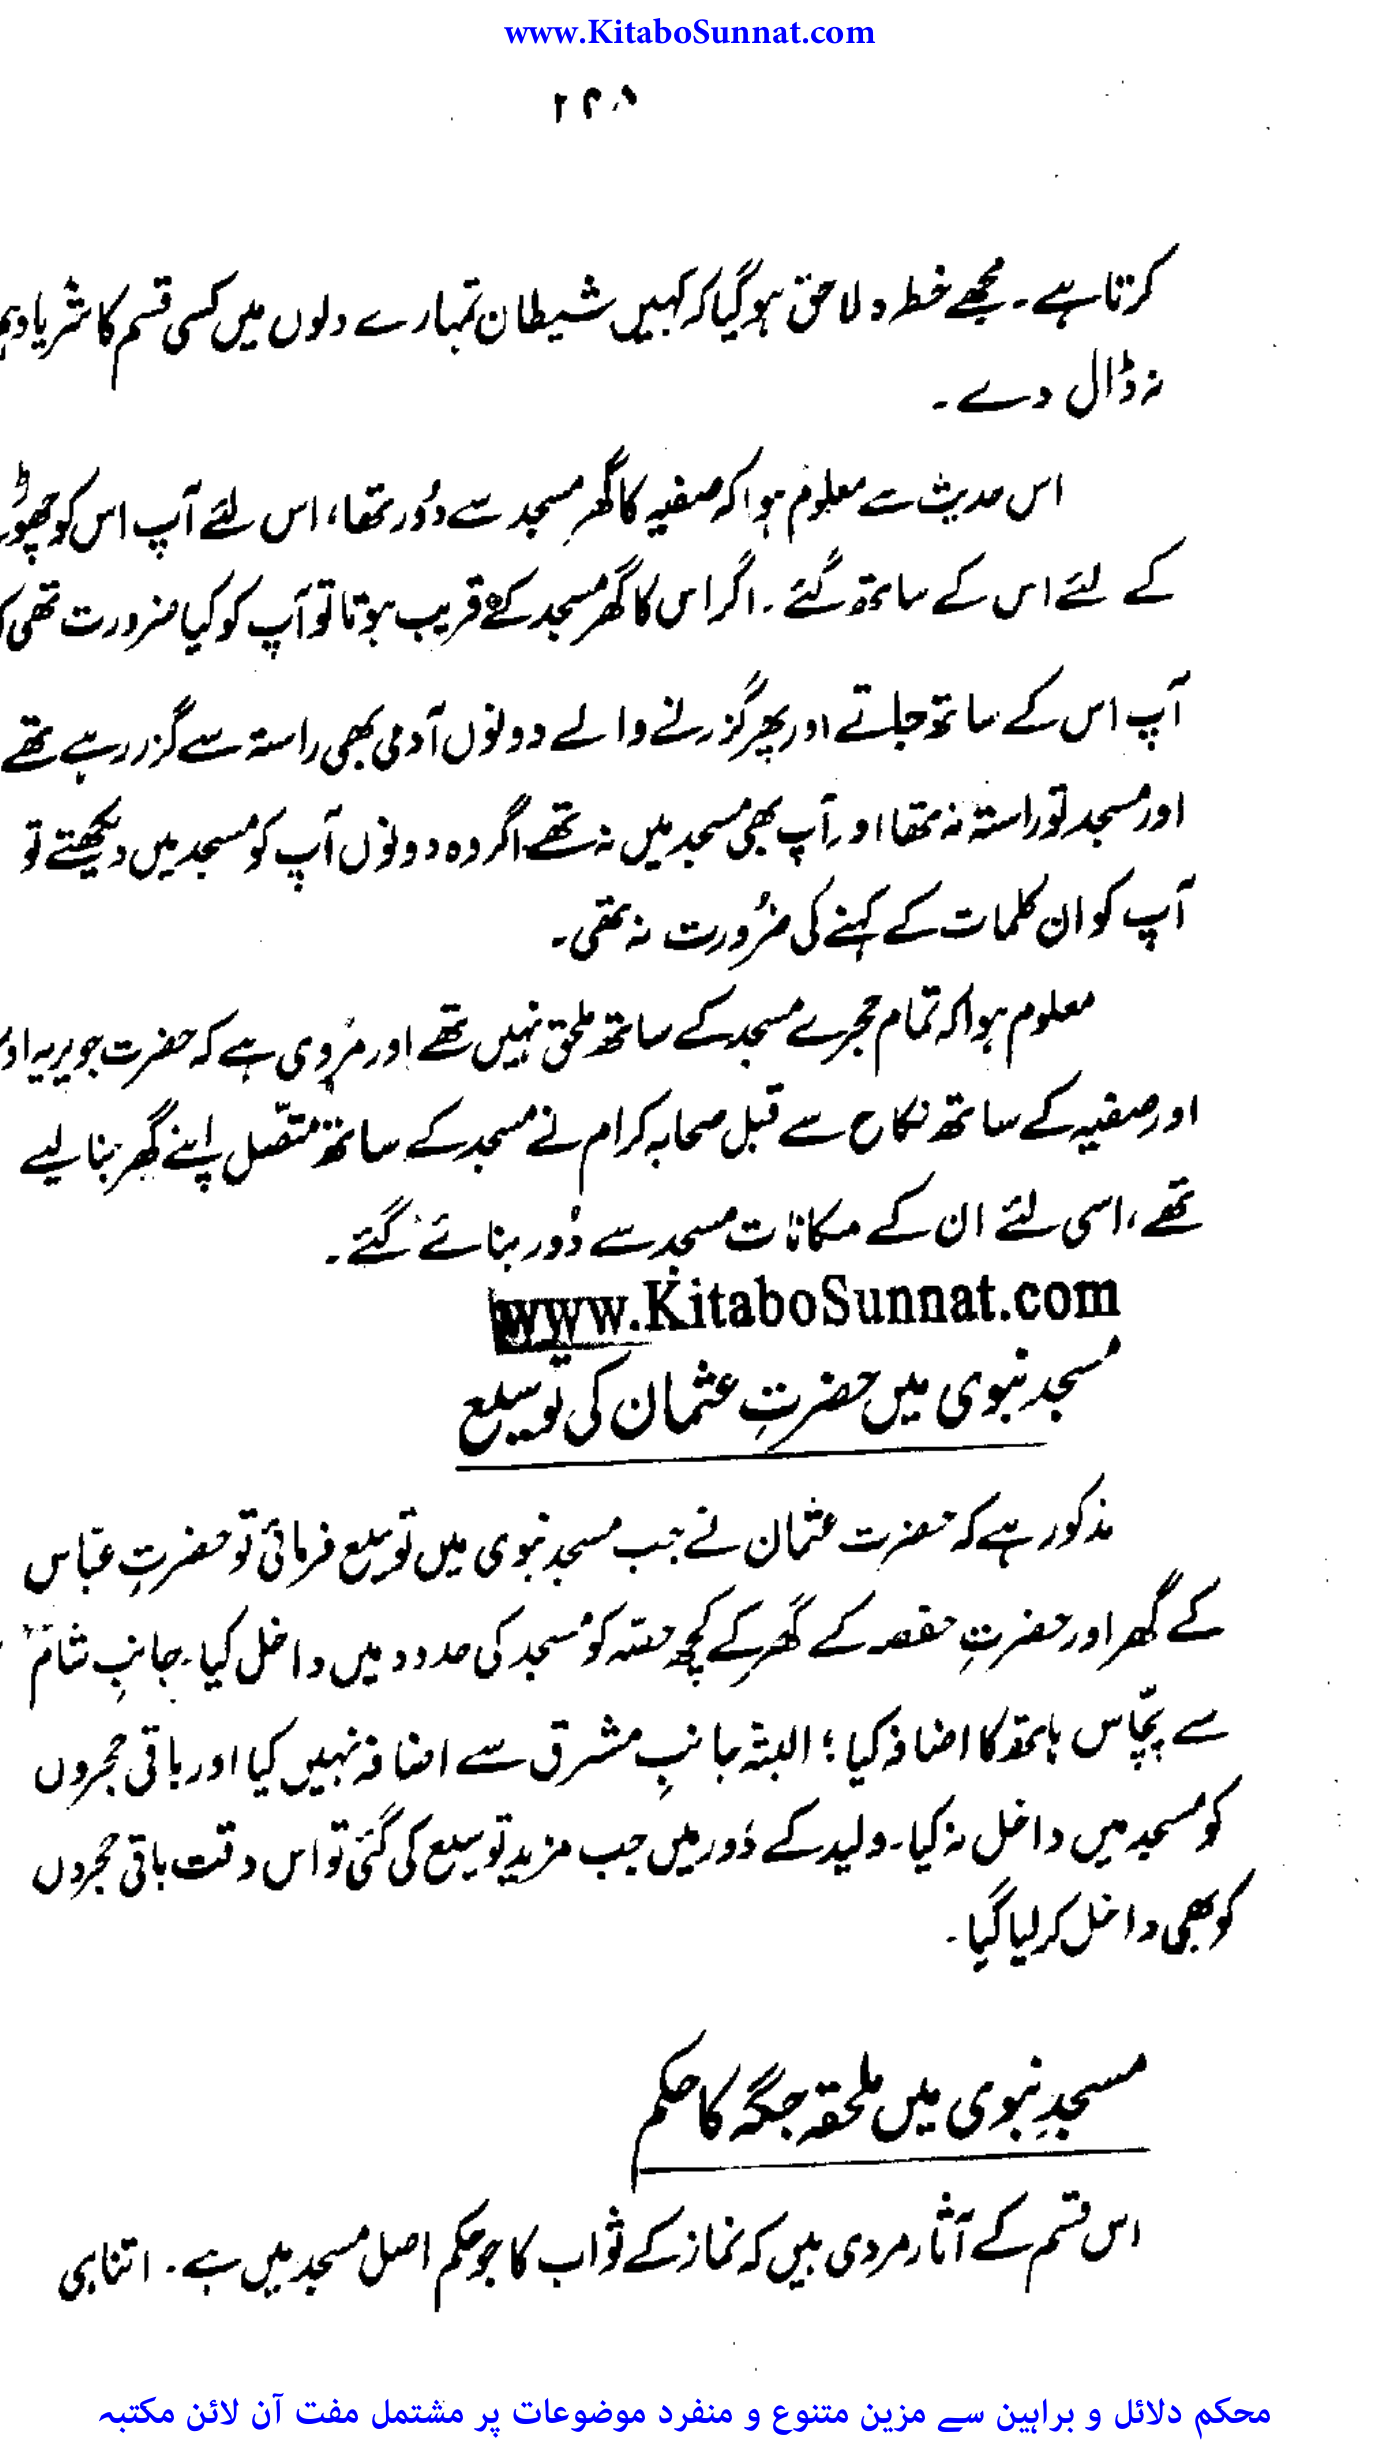 www.KitaboSunnat.com
۲۲۸
کرتا ہے۔ مجھے خطرہ لاحق ہو گیا کہ کہیں شیطان تمہارے دلوں میں کسی قسم کا شر یا
نہ ڈال دے۔
اس حدیث سے معلوم ہوا کہ صفیہ کا گھر مسجد سے دُور تھا، اس لئے آپ اس کو
کے لئے اس کے ساتھ گئے۔ اگر اس کا گھر مسجد کے قریب ہوتا تو آپ کو کیا ضرورت تھی
آپ اس کے ساتھ جاتے اور پھر گزرنے والے دونوں آدمی بھی راستہ سے گزر رہے تھے
اور مسجد تو راستہ نہ تھا اور آپ بھی مسجد میں نہ تھے اگر وہ دونوں آپ کو مسجد میں دیکھتے تو
آپ کو ان کلمات کے کہنے کی ضرُورت نہ تھی۔
معلوم ہوا کہ تمام حجرے مسجد کے ساتھ ملحق نہیں تھے اور مَروی ہے کہ حضرت جویریہ
اور صفیہ کے ساتھ نکاح سے قبل صحابہ کرام نے مسجد کے ساتھ متصّل اپنے گھر بنا لیے
تھے، اسی لئے ان کے مکانات مسجد سے دُور بنائے گئے۔
www.KitaboSunnat.com
مسجد نبوی میں حضرتِ عثمان کی توسیع
مذکور ہے کہ حضرت عثمان نے جب مسجد نبوی میں توسیع فرمائی تو حضرتِ عبّاس
کے گھر اور حضرتِ حفصہ کے گھر کے کچھ حصّہ کو مسجد کی حدود میں داخل کیا۔ جانبِ شام
سے پچّاس ہاتھ کا اضافہ کیا؛ البتہ جانبِ مشرق سے اضافہ نہیں کیا اور باقی حجروں
کو مسجد میں داخل نہ کیا۔ ولید کے دَور میں جب مزید توسیع کی گئی تو اس وقت باقی حجروں
کو بھی داخل کر لیا گیا۔
مسجدِ نبوی میں ملحقہ جگہ کا حکم
اس قسم کے آثار مروی ہیں کہ نماز کے ثواب کا جو حکم اصل مسجد میں ہے۔ اتنا ہی
محکم دلائل و براہین سے مزین متنوع و منفرد موضوعات پر مشتمل مفت آن لائن مکتبہ